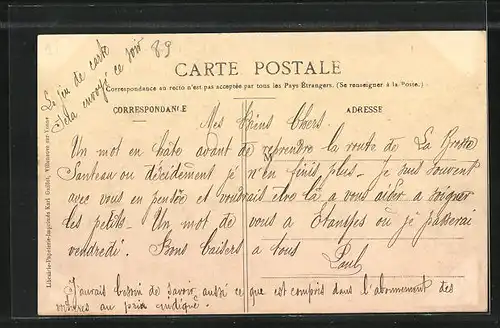 89
Le jeu de carte
Jela envoyé ce soir
CARTE POSTALE
Correspondance en recto n'est pas acceptée par tous les Pays Étrangers. (Se renseigner à la Poste.)
CORRESPONDANCE
ADRESSE
Mes biens Chers.
Un mot en hâte avant de reprendre la route de La Brosse
Santeau ou décidément je n'en finis plus. Je suis souvent
avec vous en pensée et voudrais être là a vous aider a soigner
les petits. Un mot de vous a Etampes ou je passerai
vendredi. Bons baisers a tous
Paul
J'aurais besoin de savoir aussi ce que est compris dans l'abonnement des
au prix indiqué.
Librairie-Papeterie-Imprimée Karl Guillot, Villeneuve-sur-Yonne